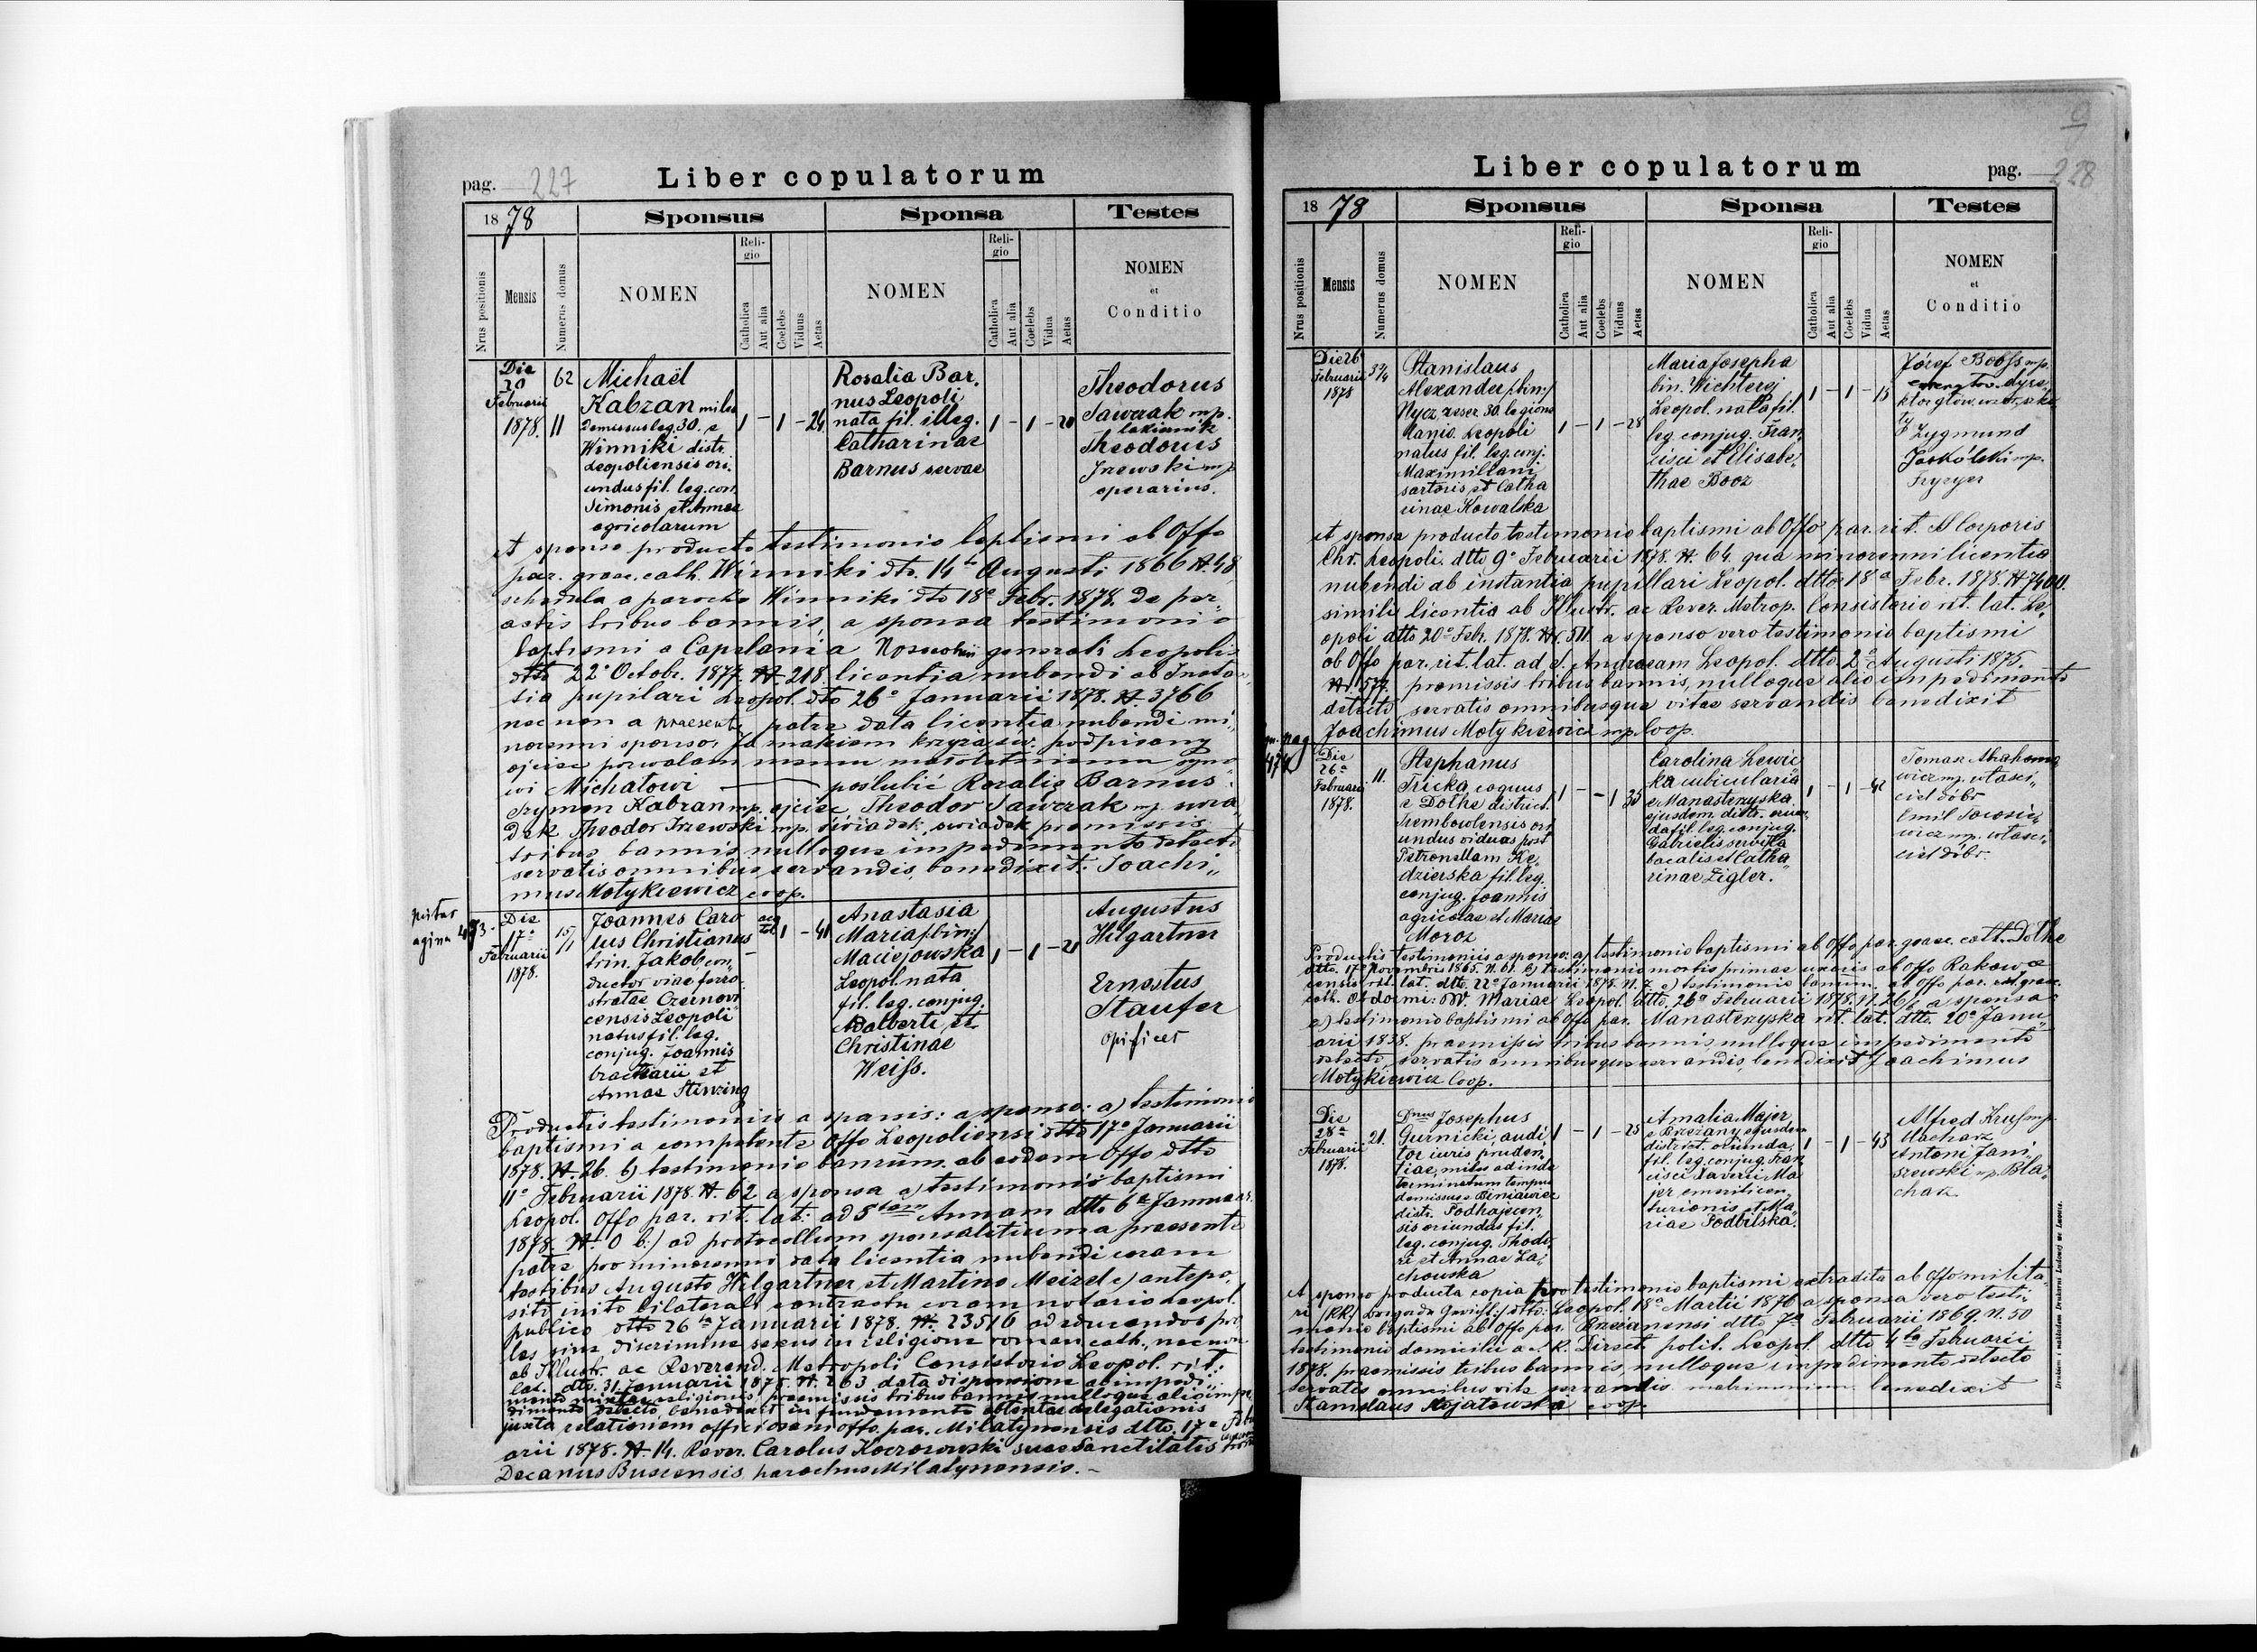 pag. 227
Liber copulatorum
18 78
Sponsus
Sponsa
Testes
Nrus positionis
Mensis
Numerus domus
NOMEN
Religio
Catholica
Aut alia
Coelebs
Viduus
Aetas
NOMEN
Religio
Catholica
Aut alia
Coelebs
Vidua
Aetas
NOMEN
et
Conditio
Die
20
Februarii
1878.
62
11
Michaël
Kabzan miles
demissus leg. 30. e
Winniki distr.
Leopoliensis ori„
undus fil. leg. con.
Simonis et Annae
agricolarum
1 — 1 — 24
Rosalia Bar„
nus Leopoli
nata fil. illeg.
Catharinae
Barnus servae
1 — 1 — 20
Theodorus
Sawczak mp.
Theodorus
operarius.
A sponso producto testimonio baptismi ab Offo
par. graec. cath. Winniki dto. 14 Augusti 1866 N. 48
schedula a parocho Winniki dto 18a Febr. 1878. de per„
actis tribus bannis, a sponsa testimonio
baptismi a Capelania Nosocomii generali Leopoli
dtto 22a Octobr. 1877. N. 218. licentia nubendi ab Instan
tia pupilari Leopol. dto 26a Januarii 1878. N. 3766
nec non a praesente patre data licentia nubendi mi„
norenni sponso. Ja znakiem krzyża św. podpisany
ojciec pozwalam memu małoletniemu syno„
wi Michałowi — poślubić Rozalię Barnus:
Szymon Kabzan mp. ojciec Theodor Sawczak mp.
świadek praemissis
tribus bannis nulloque impedimento detecto
servatis omnibus servandis, benedixit. Joachi„
mus Motykiewicz coop.
Die
17a
Februarii
1878.
15/1
Joannes Caro
lus Christianus
trin. Jakob, con„
ductor viae ferro
stratae Czernovi
censis Leopoli
natus fil. leg.
conjug. Joannis
et
Annae Stenzing
1 — 41
Anastasia
Maria /:bin:/
Maciejowska
Leopol. nata
fil. leg. conjug.
Adalberti et
Christinae
Weiss.
1 — 1 — 21
Augustus
Hilgartner
Ernestus
Staufer
opifices
Productis testimoniis a sponsis: a sponso: a) testimonio
baptismi a competente Offo Leopoliensi dtto 17a Januarii
1878. N. 26. b) testimonio bannum. ab eodem Offo dtto
11a Februarii 1878. N. 62 a sponsa a) testimonio baptismi
Leopol. Offo par. rit. lat. ad Stam Annam dtto 6a Januar.
1878. N. 0 b:) ad protocollum sponsalitium a praesente
patre pro minorenni data licentia nubendi coram
testibus Augusto Hilgartner et Martino Meizel c) antepo„
sito inito bilaterali contractu coram notario Leopol.
publico dtto 26ta Januarii 1878. N. 23516 ad educandos pro„
les sine discrimine sexus in religione roman. cath., nec non
ab Illustr. ac Reverend. Metropoli Consistorio Leopol. rit.:
lat. dto. 31. Januarii 1878. N. 263 data dispensione ab impedi„
mento mixtae religionis, praemissis tribus bannis nulloque alio impe„
dimento detecto, benedixit in fundamento obtentae delegationis
juxta relationem officiosam offo. par. Milatynensis dtto. 17a Febru
arii 1878. N. 14. Rever. Carolus Koczorowski suae Sanctitatis
Decanus Buscensis, parochus Milatynensis. —
Liber copulatorum
pag. 228
18 78
Sponsus
Sponsa
Testes
Nrus positionis
Mensis
Numerus domus
NOMEN
Religio
Catholica
Aut alia
Coelebs
Viduus
Aetas
NOMEN
Religio
Catholica
Aut alia
Coelebs
Vidua
Aetas
NOMEN
et
Conditio
Die 26
Februarii
1878
Stanislaus
Alexander /:bin:/
Nycz, reser. 30. legionis
Leopoli
natus fil. leg. conj.
Maximiliani
sartoris et Catha
rinae Kowalska
1 — 1 — 28
Maria Josepha
bin. Wichterej
Leopol. nata fil.
leg. conjug. Fran„
cisci et Elisabe„
thae Booz
1 — 1 — 18
Józef
Zygmund
Jaskólski mp.
Fryzyer
A sponsa producto testimonio baptismi ab Offo par. rit. Corporis
Chr. Leopoli dtto 9a Februarii 1878. N. 64. qua minorenni licentia
nubendi ab instantia pupillari Leopol. dtto 18a Febr. 1878. N. 7400.
simili licentia ab Illustr. ac Rever. Metrop. Consistorio rit. lat. Le„
opoli dtto 20a Feb. 1878. N. 511. a sponso vero testimonio baptismi
ab Offo par. rit. lat. ad S. Andream Leopol. dtto. 2a Augusti 1875.
N. 577. premissis tribus bannis, nulloque alio impedimento
detecto servatis omnibusque vitae servandis benedixit
Joachimus Motykiewicz mp. Coop.
Die
26a
Februarii
1878.
11.
Stephanus
Tricka coquus
e Dołhe district.
Trembowlensis ori
undus viduus post
Petronellam Kę„
dzierska fil. leg.
conjug. Joannis
agricolae et Mariae
Moroz
— 1 35
Carolina Lewic„
ka cubicularia
e Manasterzyska
ejusdem. distr. oriun„
da fil. leg. conjug.
Gabrielis
et Catha„
rinae Zigler.
1 — 1
Tomasz Abrahamo
wicz mp. właści„
ciel dóbr
Emil Torosie„
wicz mp. właści„
ciel dóbr.
Productis testimoniis a sponso: a) testimonio baptismi ab Offo par. graec. cath. Dołhe
dtto. 17. Novembris 1865. N. 61. b) testimonio mortis primae uxoris ab Offo Rakowce
censis rit. lat. dtto. 22a Januarii 1878. N. 7. c) testimonio bannum. ab Offo par. graec.
cath. ad dormi: BV. Mariae Leopol. dtto. 26a Februarii 1878. N. 26/, a sponsa
testimonio baptismi ab Offo par. Manasterzyska rit. lat. dtto. 20a Janu„
arii 1838. praemissis tribus bannis, nulloque impedimento
detecto, servatis omnibusque servandis, benedixit Joachimus
Motykiewicz Coop.
Die
28a
Februarii
1878.
21.
Dnus Josephus
Gurnicki, audi„
tor iuris pruden„
tiae, miles ad inde
terminatum tempus
demissus e Beniawice
distr. Podhajecen„
sis oriundus fil.
leg. conjug. Thodo„
ri et Annae La„
chowska
1 — 1 — 25
Amalia Majer
e Brzezany ejusdem
district. oriunda
fil. leg. conjug. Fran„
cisci Xaverii Ma„
jer emeriti cen„
turionis et Ma„
riae Podbilska.
1 — 1 — 43
Alfred mp.
blacharz
Antoni Jani„
szewski mp. Bla„
charz
A sponso producta copia pro testimonio baptismi extradita ab Offo milita„
ri Leopol. 18a Martii 1876 a sponsa vero testi„
monio baptismi ab Offo par. Brzezanensi dtto 7a Februarii 1869. N. 50
testimonio domicilii a K. Direct. polit. Leopol. dtto 4ta Februarii
1878. praemissis tribus bannis, nulloque impedimento detecto
servatis omnibus rite servandis matrimonium benedixit
Stanislaus coop.
Drukiem i nakładem Drukarni Ludowej we Lwowie.